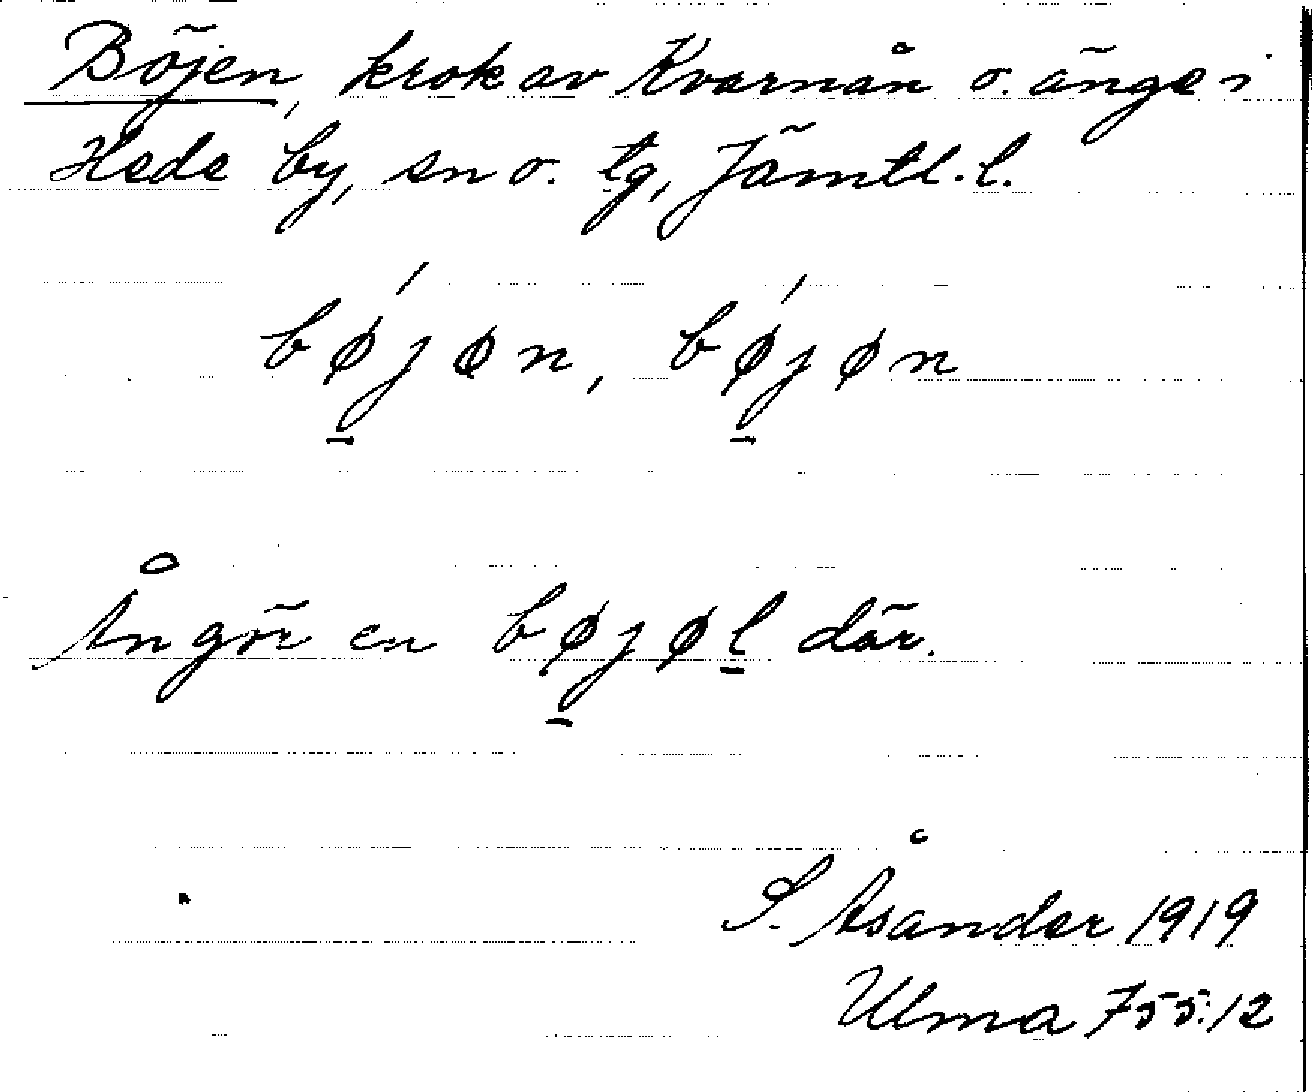 Böjen, krok av Kvarnån o. änge i
Hede by, sn o. tg, Jämtl. l.
bǿjøn, bǿjøn
Ån gör en bøjøl där.
S. Åsander 1919
Ulma 755:12